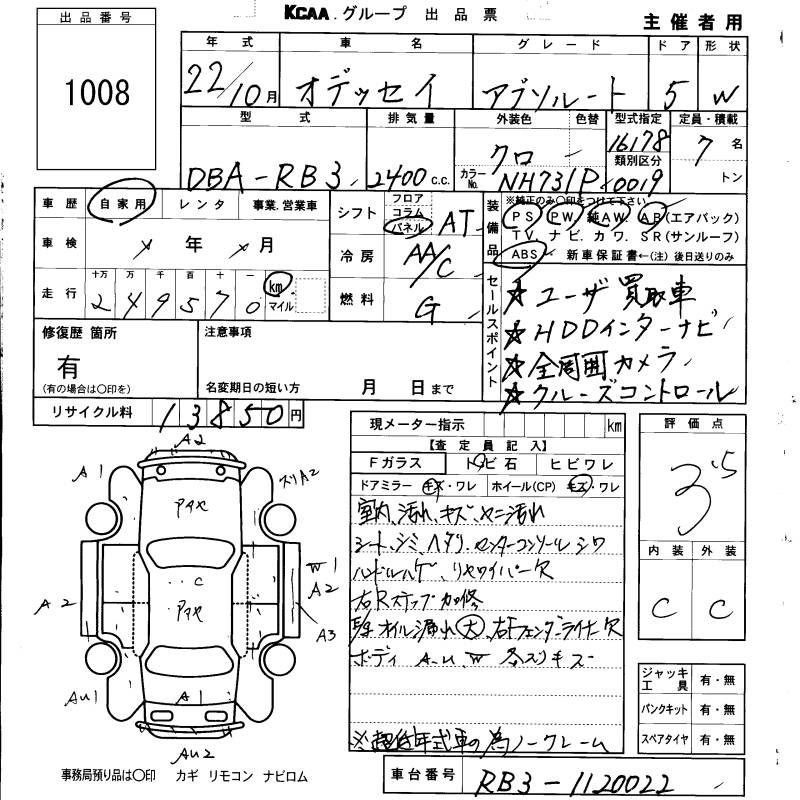 出品番号
1008
KCAA.グループ 出品票
主催者用
年式 車名 グレード ドア 形状
22/10月 オデッセイ アブソルート 5 W
型式 排気量 外装色 色替 型式指定 定員・積載
DBA-RB3 2400c.c. クロ 16178 7名
カラーNo. NH731P 類別区分 0019 トン
車歴 自家用 レンタ 事業.営業車
車検 メ年メ月
走行 十万 万 千 百 十 一
249570 km マイル
シフト フロア コラム パネル AT
冷房 AA/C
燃料 G
装備品
※純正のみ○印をつけて下さい
PS PW 純AW. AB(エアバック)
TV. ナビ. カワ. SR(サンルーフ)
ABS 新車保証書←(注)後日送りのみ
セールスポイント
☆ユーザ買取車
☆HDDインターナビ
☆全周囲カメラ
☆クルーズコントロール
修復歴 箇所
有
(有の場合は○印を)
注意事項
名変期日の短い方 月 日まで
リサイクル料 13850円
現メーター指示 km
【査定員記入】
Fガラス トビ石 ヒビワレ
ドアミラー キズ・ワレ ホイール(CP) キズ・ワレ
室内、汚れ、キズ、ヤニ汚れ
シート、シミ、ヘタリ、センターコンソールシワ
ハンドルハゲ、リヤワイパー欠
右Rステップ加修
オイル漏れ(大)、右Fフェンダーライナー欠
ボディ A.U.W
※超低年式車の為ノークレーム
評価点
3.5
内装 外装
C C
ジャッキ工具 有・無
パンクキット 有・無
スペアタイヤ 有・無
車台番号 RB3-1120022
A2
A1
スリA2
アタヤ
W1
A2
C
アタヤ
A2
A3
AU1
A1
AU2
事務局預り品は○印 カギ リモコン ナビロム